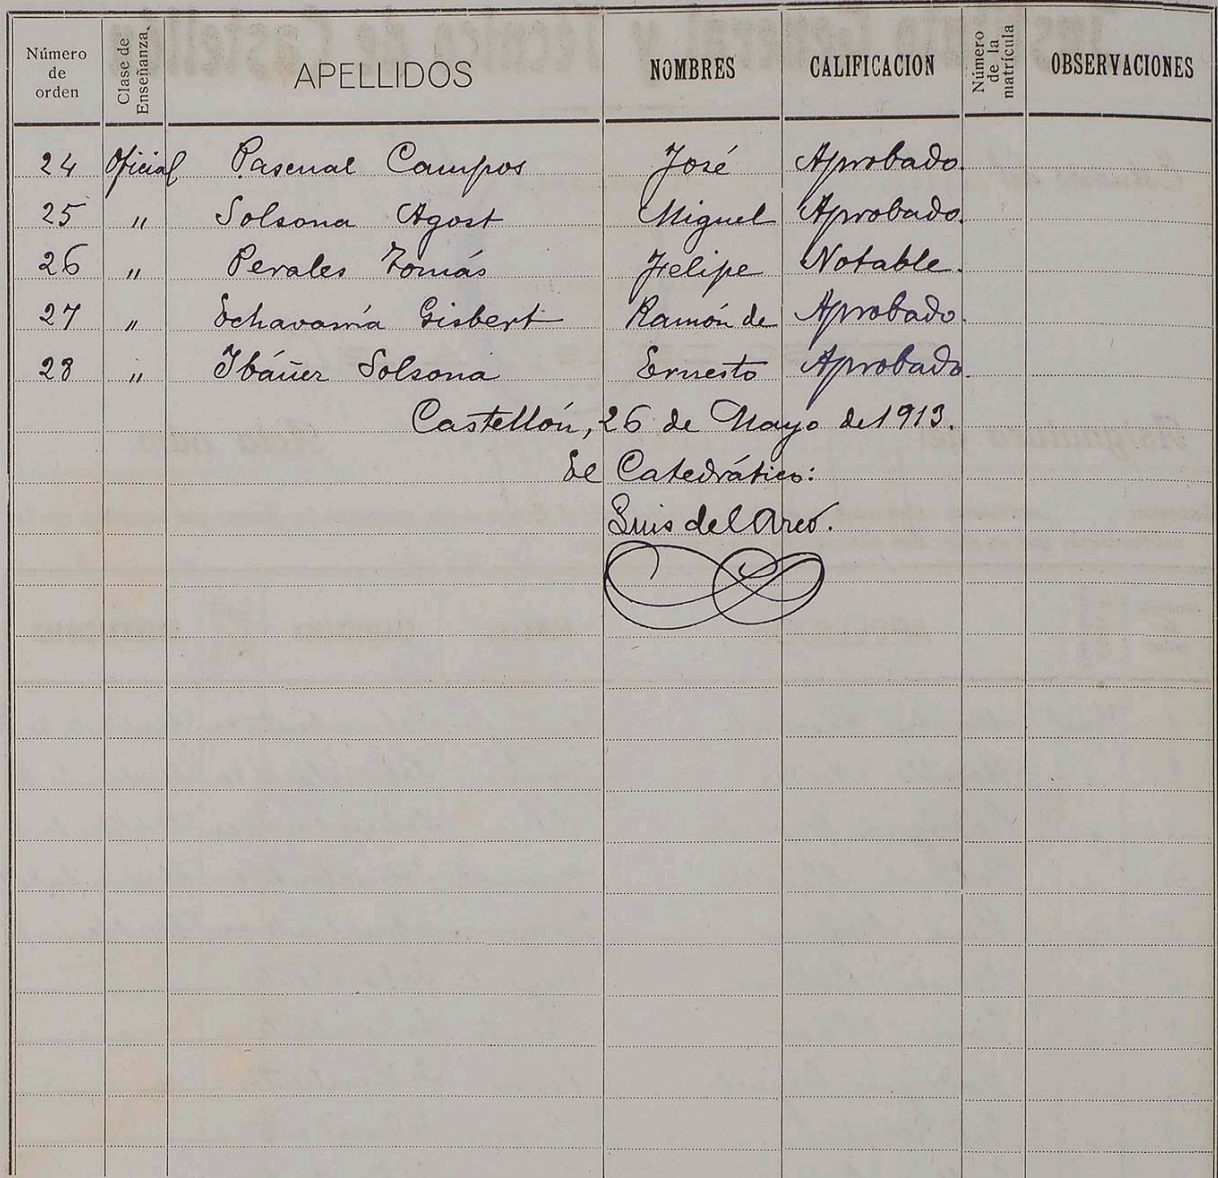 Número de orden Clase de Enseñanza. APELLIDOS NOMBRES CALIFICACION Número de la matrícula OBSERVACIONES
24 Oficial Pascual Campos José Aprobado.
25 " Solsona Agost Miguel Aprobado.
26 " Perales Tomás Felipe Notable.
27 " Echavarría Gisbert Ramón de Aprobado.
28 " Ibáñez Solsona Ernesto Aprobado.
Castellón, 26 de Mayo de 1913.
El Catedrático:
Luis del Arco.